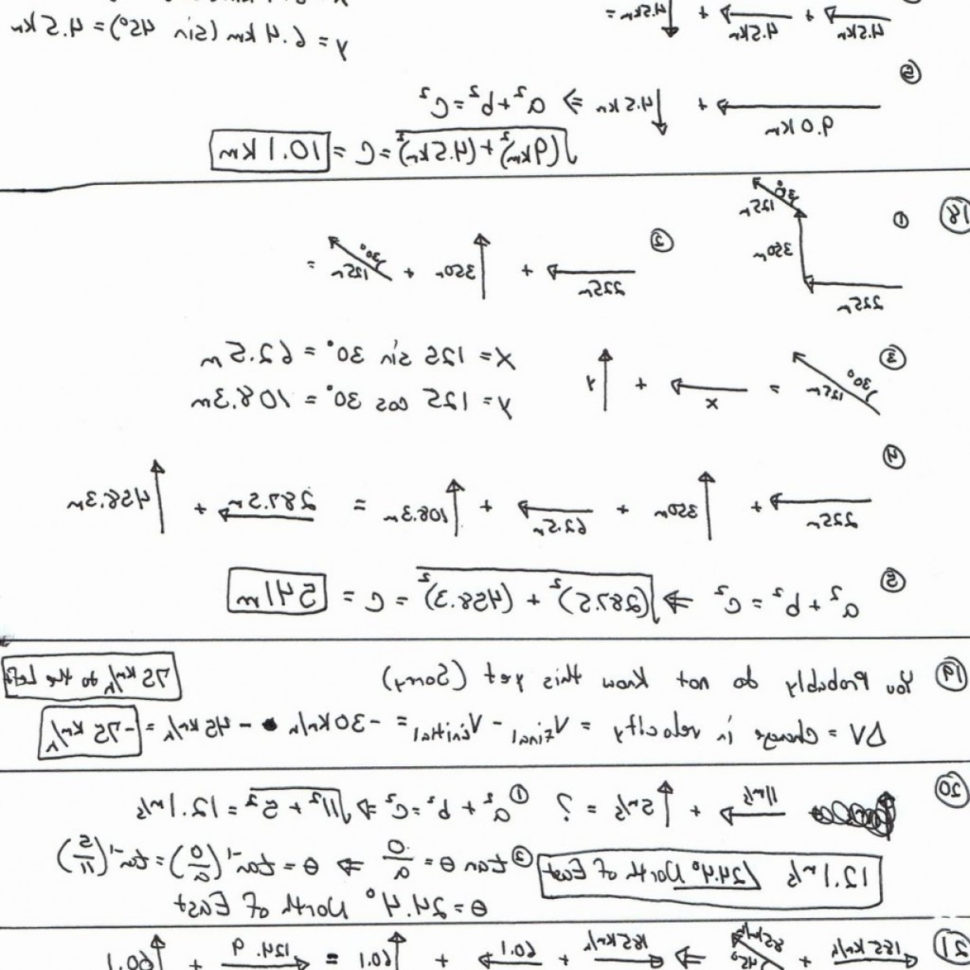 y = 6.4 km (sin 45°) = 4.5 km
4.5 km + 4.5 km + 4.5 km =
⑤ 9.0 km + 4.5 km ⇒ a² + b² = c²
√(9km)² + (4.5km)² = c = 10.1 km
18 ① 225m 350m 125m 30° ② 225m + 350m + 125m 30° =
③ 125m 30° = x + y x = 125 sin 30° = 62.5m
y = 125 cos 30° = 108.3m
④ 225m + 350m + 62.5m + 108.3m = 287.5m + 458.3m
⑤ a² + b² = c² ⇒ √(287.5)² + (458.3)² = c = 541m
19 You Probably do not know this yet (Sorry) 75 km/h to the Left
ΔV = change in velocity = Vfinal - Vinitial = -30 km/h - 45 km/h = -75 km/h
20 11 m/s + 5 m/s = ? ① a² + b² = c² ⇒ √11² + 5² = 12.1 m/s
12.1 m/s ∠24.4° North of East ② tan θ = o/a ⇒ θ = tan⁻¹(o/a) = tan⁻¹(5/11)
θ = 24.4° North of East
21 185 km/h + 85 km/h 45° ⇒ 185 km/h + 60.1 + 60.1 = 124.9 + 60.1